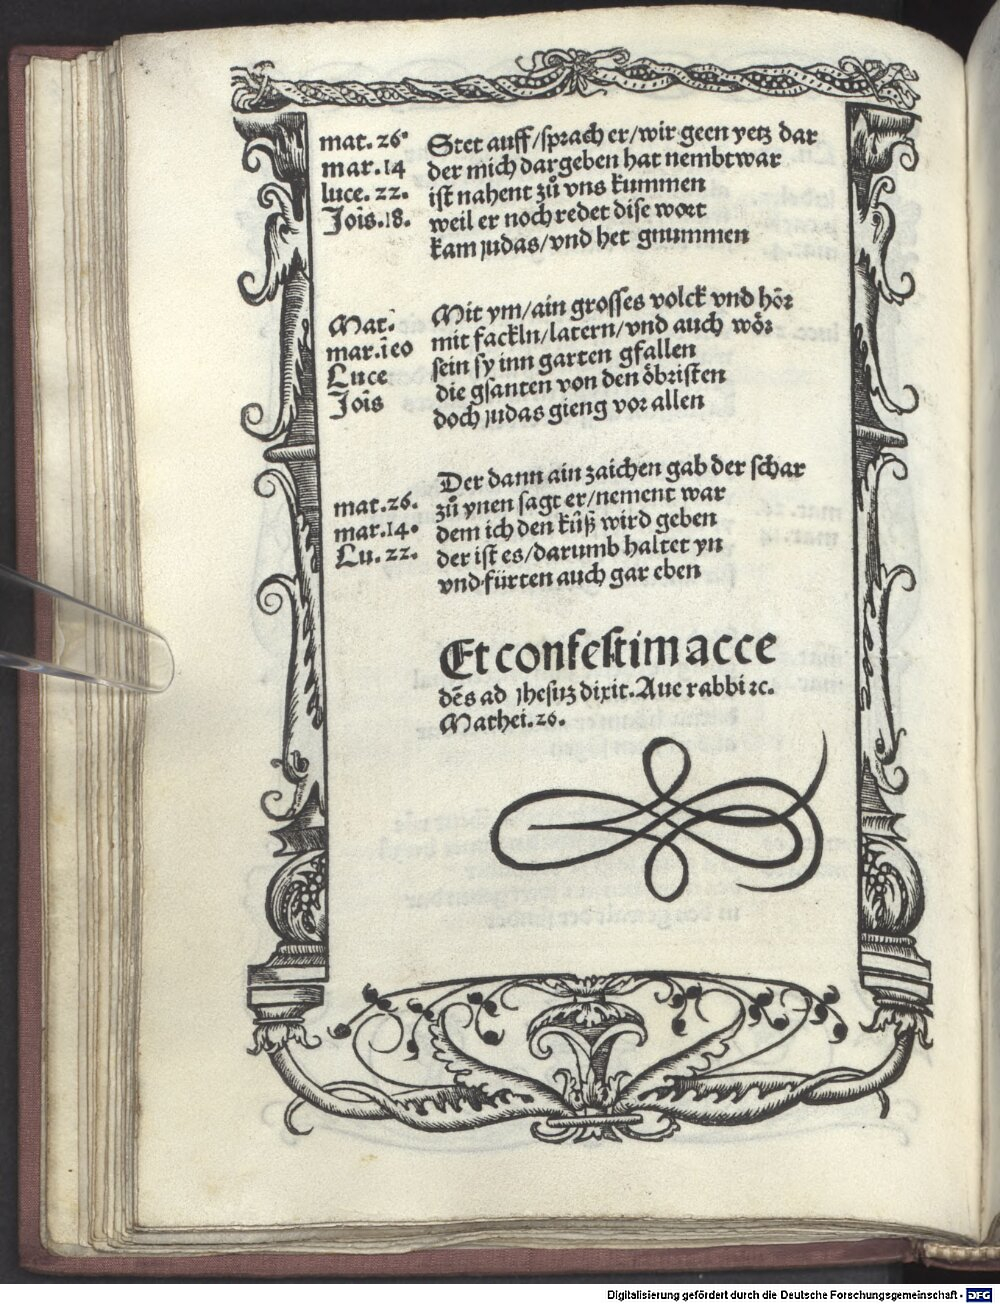 mat. 26. Stet auff/sprach er/wir geen yetz dar
mar. 14 der mich dargeben hat nembt war
luce. 22. ist nahent zů vns kummen
Joīs. 18. weil er noch redet dise wort
kam judas/vnd het gnummen
Mit ym/ain grosses volck vnd hör
Mat. mit fackln/latern/vnd auch wör
mar. īeo sein sy inn garten gfallen
Luce die gsanten von den öbristen
Joīs doch judas gieng vor allen
Der dann ain zaichen gab der schar
mat. 26. zů ynen sagt er/nement war
mar. 14. dem ich den kůß wird geben
Lu. 22. der ist es/darumb haltet yn
vnd fürten auch gar eben
Et confestim acce
dēs ad jhesuȝ dixit. Aue rabbi ꝛc.
Mathei. 26.
Digitalisierung gefördert durch die Deutsche Forschungsgemeinschaft - DFG